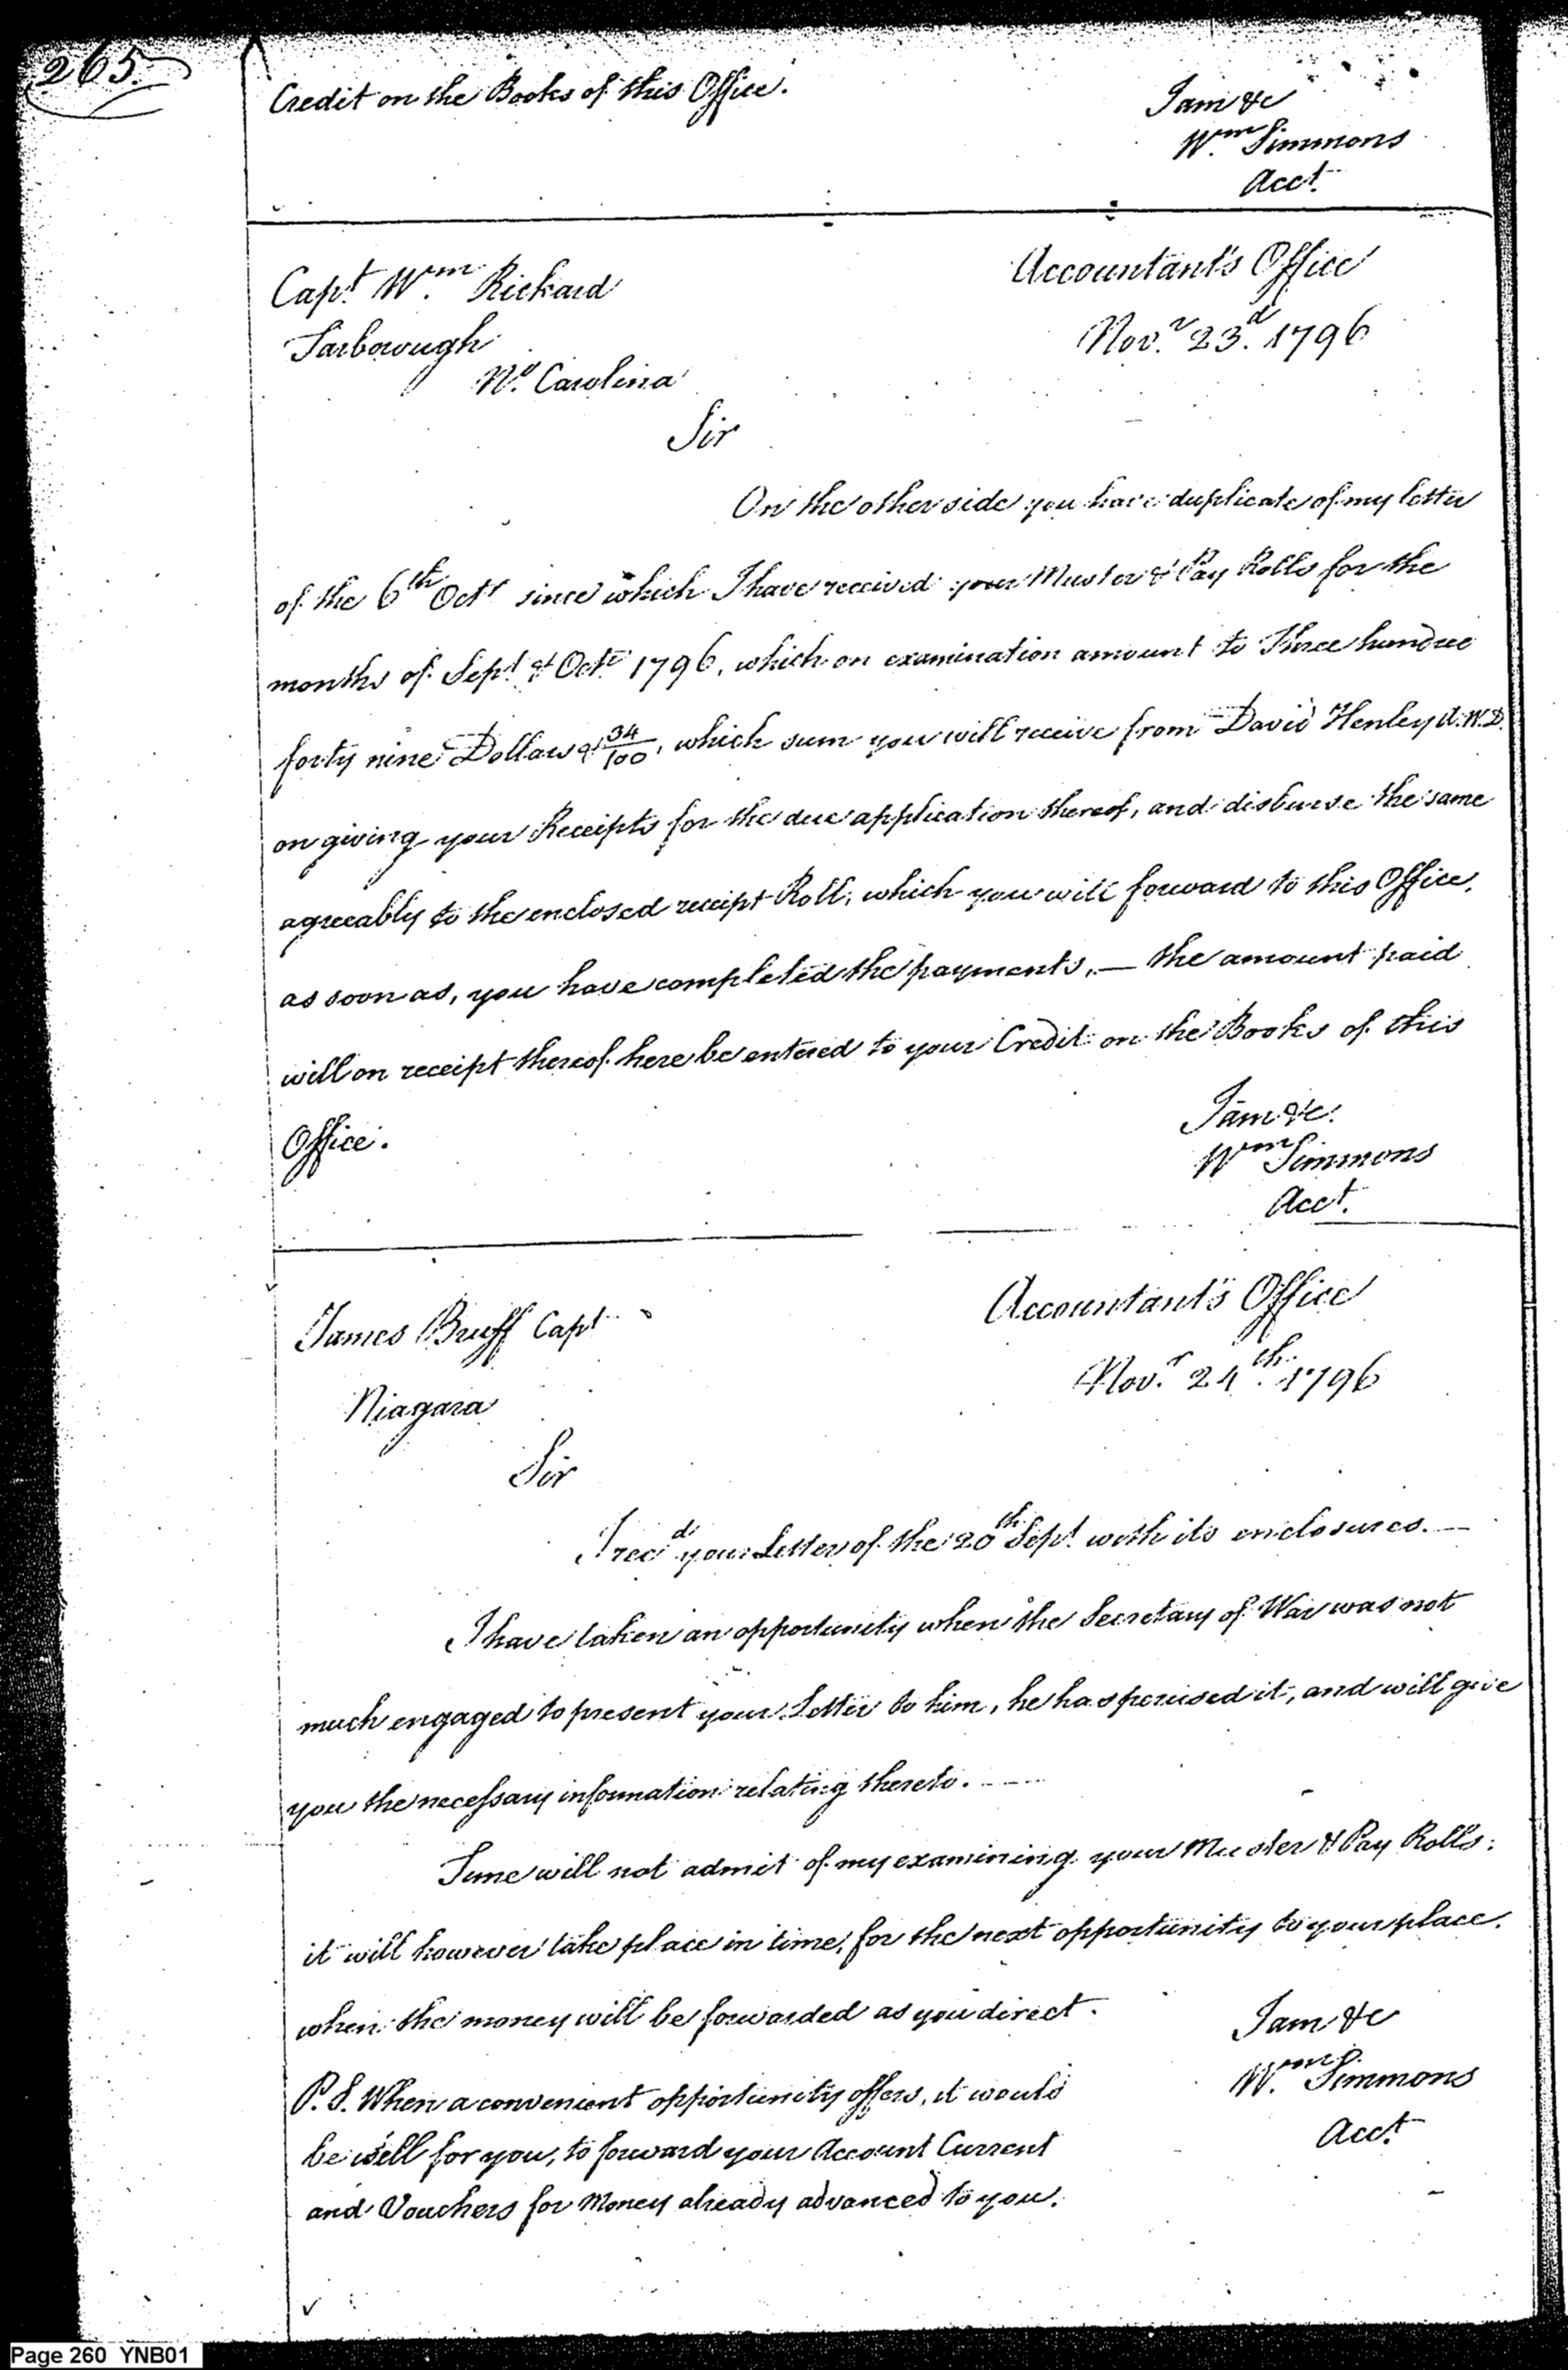 265.
Credit on the Books of this Office.
I am &c
Wm. Simmons
Acct.
Capt. Wm. Rickard
Tarborough
No. Carolina
Accountant's Office
Novr. 23d. 1796
Sir
On the other side you have duplicate of my letter
of the 6th Octr since which I have received your Muster & Pay Rolls for the
months of Sept. & Octr. 1796, which on examination amount to Three hundred
forty nine Dollars & 34/100, which sum you will receive from David Henley A.W.D.
on giving your Receipts for the due application thereof, and disburse the same
agreeably to the enclosed receipt Roll, which you will forward to this Office,
as soon as, you have completed the payments, — the amount paid
will on receipt thereof here be entered to your Credit on the Books of this
Office.
I am &c.
Wm Simmons
Acct.
James Bruff Capt
Niagara
Accountant's Office
Novr. 24th. 1796
Sir
I recd your Letter of the 20th Sept. with its enclosures. —
I have taken an opportunity when the Secretary of War was not
much engaged to present your Letter to him, he has perused it, and will give
you the necessary information relating thereto. ----
Time will not admit of my examining your Muster & Pay Rolls;
it will however take place in time, for the next opportunity to your place,
when the money will be forwarded as you direct.
I am &c
Wm. Simmons
Acct.
P.S. When a convenient opportunity offers, it would
be well for you, to forward your Account Current
and Vouchers for Money already advanced to you.
Page 260 YNB01